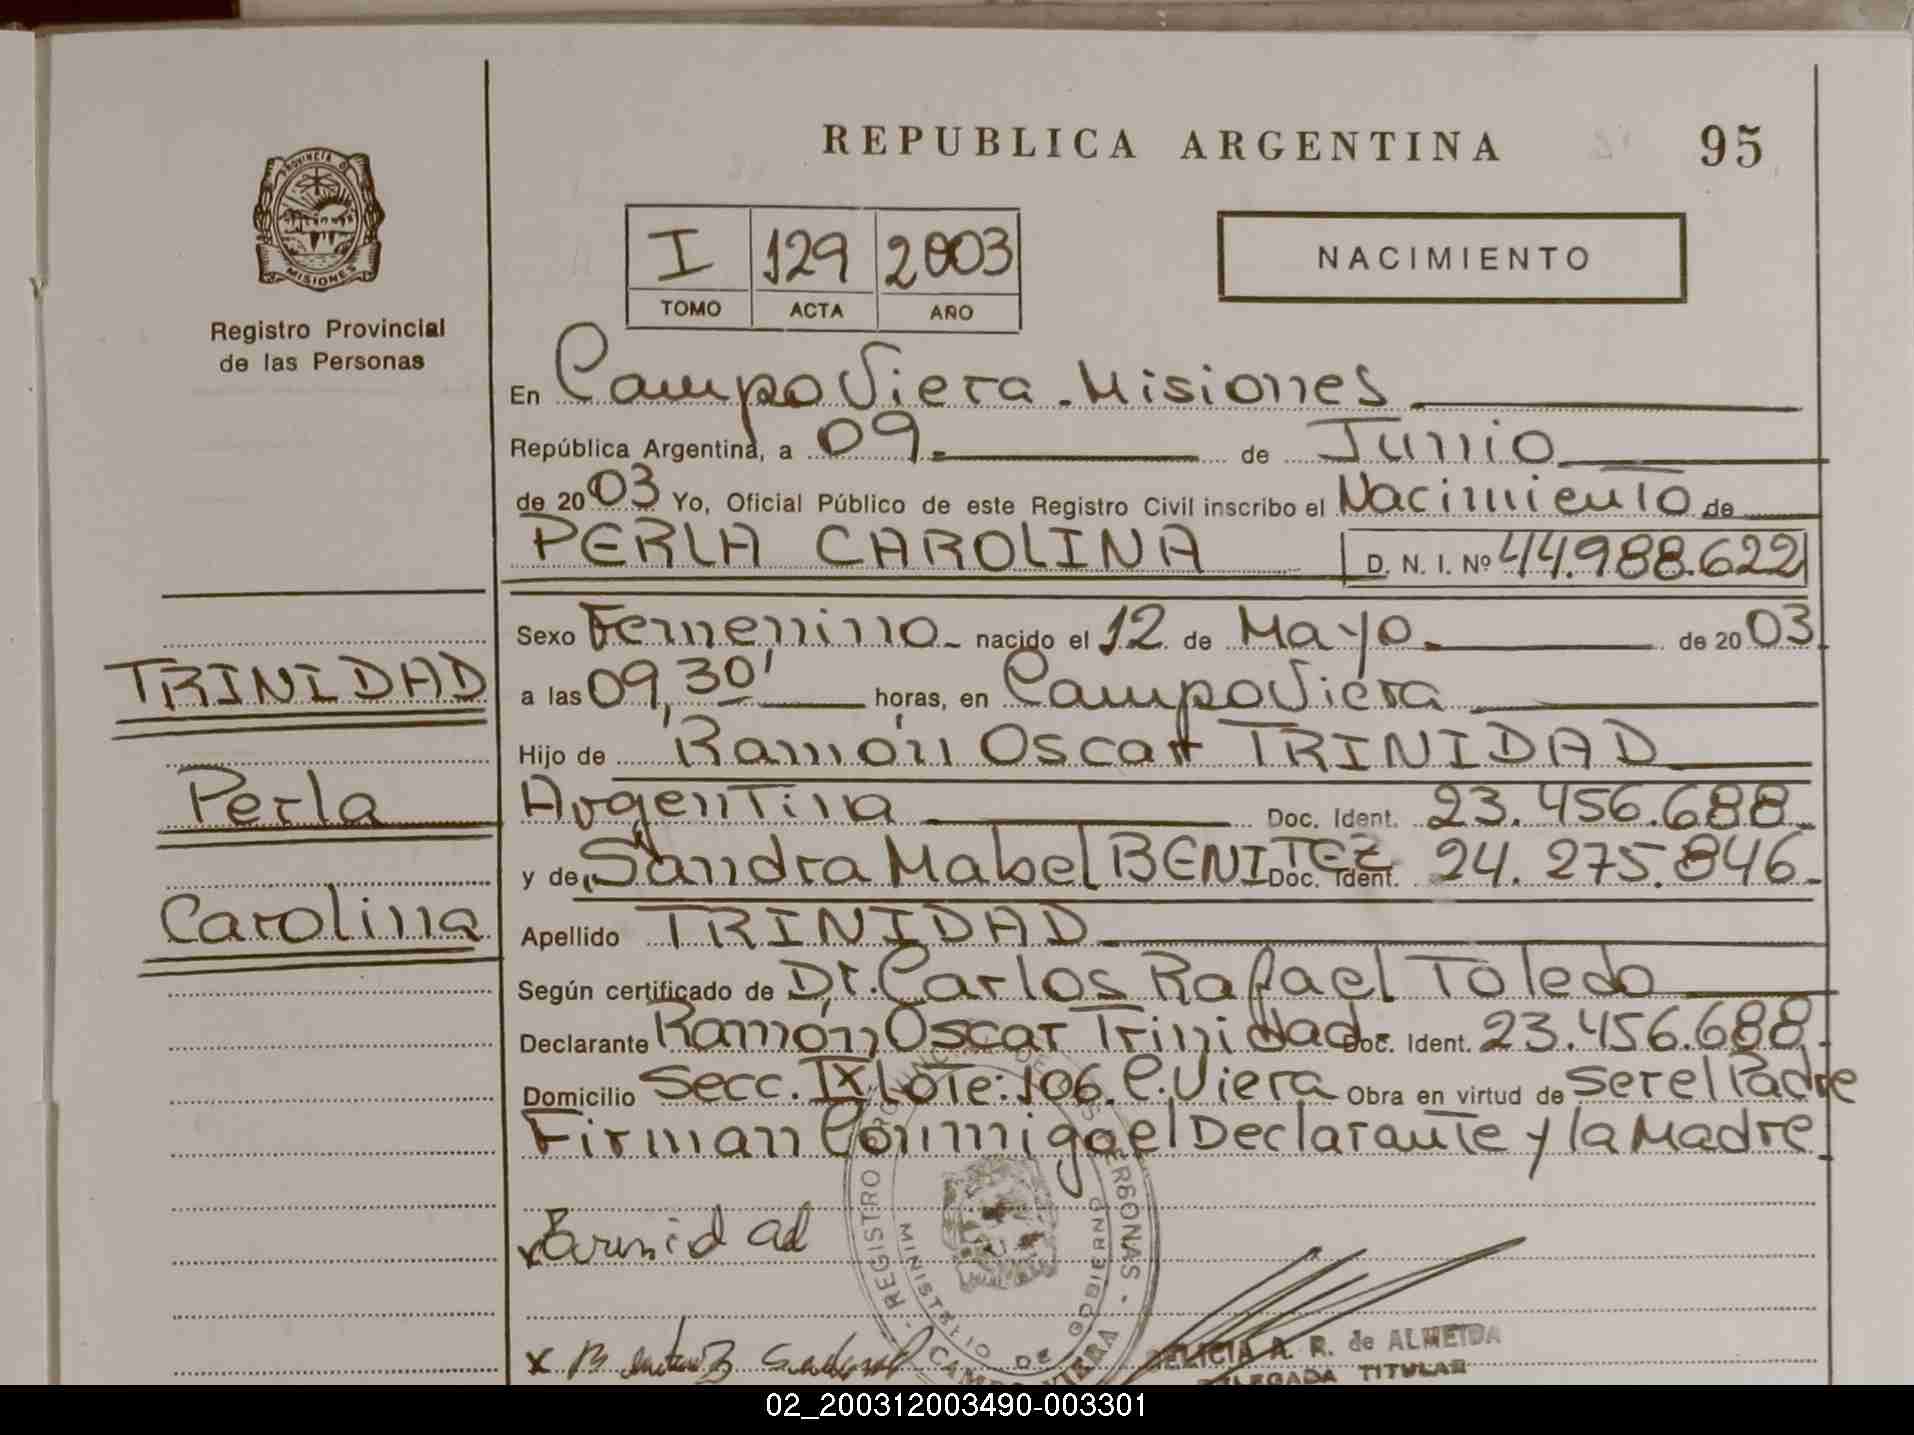 REPUBLICA ARGENTINA 95
PROVINCIA D MISIONES
Registro Provincial
de las Personas
I 129 2003
TOMO ACTA AÑO
NACIMIENTO
En Campo Viera - Misiones
República Argentina, a 09 de Junio
de 2003 Yo, Oficial Público de este Registro Civil inscribo el Nacimiento de
PERLA CAROLINA D. N. I. Nº 44.988.622
Sexo Femenino nacido el 12 de Mayo de 2003
a las 09,30' horas, en Campo Viera
Hijo de Ramón Oscar TRINIDAD
Argentina Doc. Ident. 23.456.688
y de Sandra Mabel BENITEZ Doc. Ident. 24.275.846
Apellido TRINIDAD
Según certificado de Dr. Carlos Rafael Toledo
Declarante Ramón Oscar Trinidad Doc. Ident. 23.456.688
Domicilio Secc. IX Lote: 106. C. Viera Obra en virtud de ser el Padre
Firman Conmigo el Declarante y la Madre
TRINIDAD
Perla
Carolina
REGISTRO PERSONAS
MINISTERIO DE GOBIERNO
CAMPO VIERA
DELICIA A. R. de ALMEIDA
DELEGADA TITULAR
02_200312003490-003301